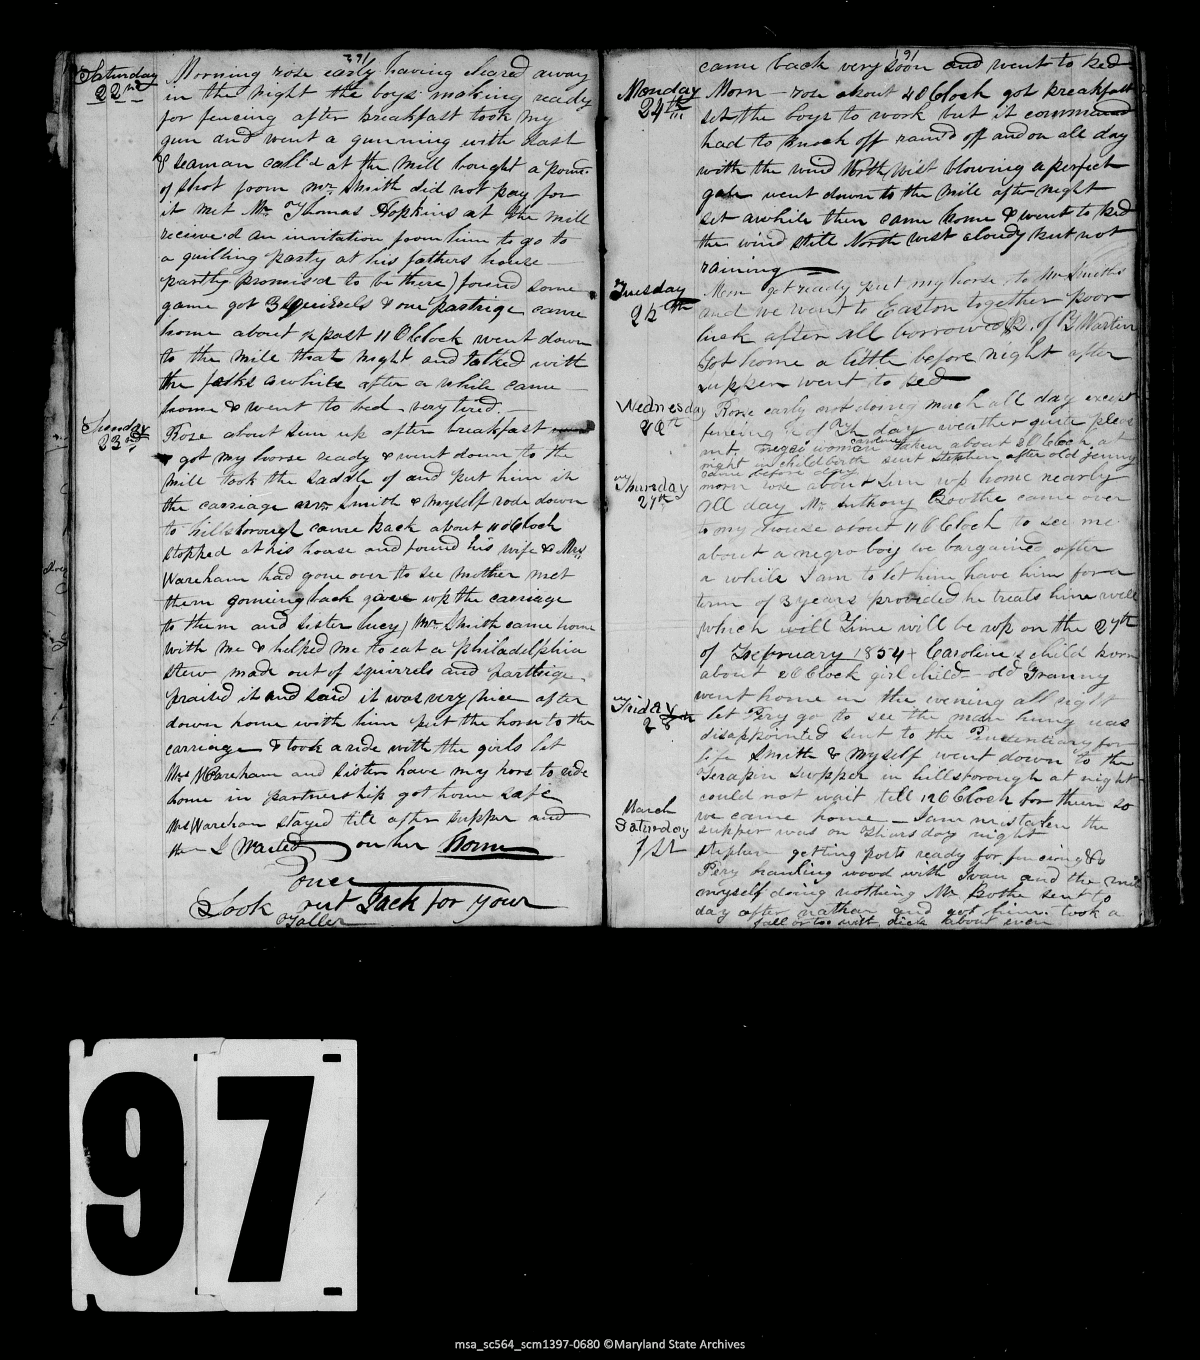 Saturday
22nd
Morning rose early having cleared away
in the night the boys making ready
for fencing after breakfast took my
gun and went a gunning with
& Seaman call'd at the mill bought a pound
of shot from Mr. Smith did not pay for
it met Mr. Thomas Hopkins at the mill
receive'd an invitation from him to go to
a quilting party at his fathers house
partly promis'd to be there) found some
game got 3 Squirrels & one partrige came
home about ½ past 11 OClock went down
to the mill that night and talked with
the folks awhile after a while came
home & went to bed very tired.
Sunday
23rd
Rose about Sun up after breakfast
got my horse ready & went down to the
mill took the saddle of and put him in
the carriage Mr. Smith & myself rode down
to hillsborough came back about 11 OClock
stopped at his house and found his wife & Mrs
Wareham had gone over to see mother met
them comeing back gave up the carriage
to them and sister lucy) Mr. Smith came home
with me & helped me to eat a philadelphia
stew made out of squirrels and partrige
praised it and said it was very nice after
down home with him put the horse to the
carriage & took a ride with the girls let
Mrs Wareham and sister have my hors to ride
home in partnership got home safe
Mrs Wareham stayed till after supper and
then I Waited on her Home
once
Look out Jack for your
Taller
191
came back very soon and went to bed
Monday
24th
Morn - rose about 4 OClock got breakfast
set the boys to work but it commenced
had to knock off rain'd off and on all day
with the wind North West blowing a perfect
gale went down to the mill after night
set awhile then came home & went to bed
the wind still North west cloudy but not
raining
Tuesday
25th
Morn got ready put my horse to Mr Smiths
and we went to Easton together poor
luck after all borrowed $2. of
Got home a little before night after
supper went to bed
Wednesday
Rose early not doing much all day except
fencing day weather quite pleas
ant, negro woman Caroline taken about 8 OClock at
night in childbirth sent Stephen after old jenny
came before day
Thursday
27th
morn rose about Sun up home nearly
all day Mr. Anthony Boothe came over
to my house about 11 OClock to see me
about a negro boy we bargained after
a while I am to let him have him for a
term of 3 years provided he treats him well
which will Time will be up on the 27th
of February 1854 Caroline's child born
about 2 OClock girl child - old Granny
went home in the evening all right
Friday
28
let Pery go to see the man hung was
disappointed sent to the Penetentiary for
life Smith & Myself went down to the
Terapin Supper in hillsborough at night
could not wait till 12 OClock for them so
we came home - I am mistaken the
supper was on Thursday night
March
Saturday
1st
Stephen getting posts ready for fencing &c
Pery hauling wood with Ivan and the
myself doing nothing Mr Bothe sent to
day after nathan and got him. took a
fall or too with dick about even
97
msa_sc564_scm1397-0680 ©Maryland State Archives